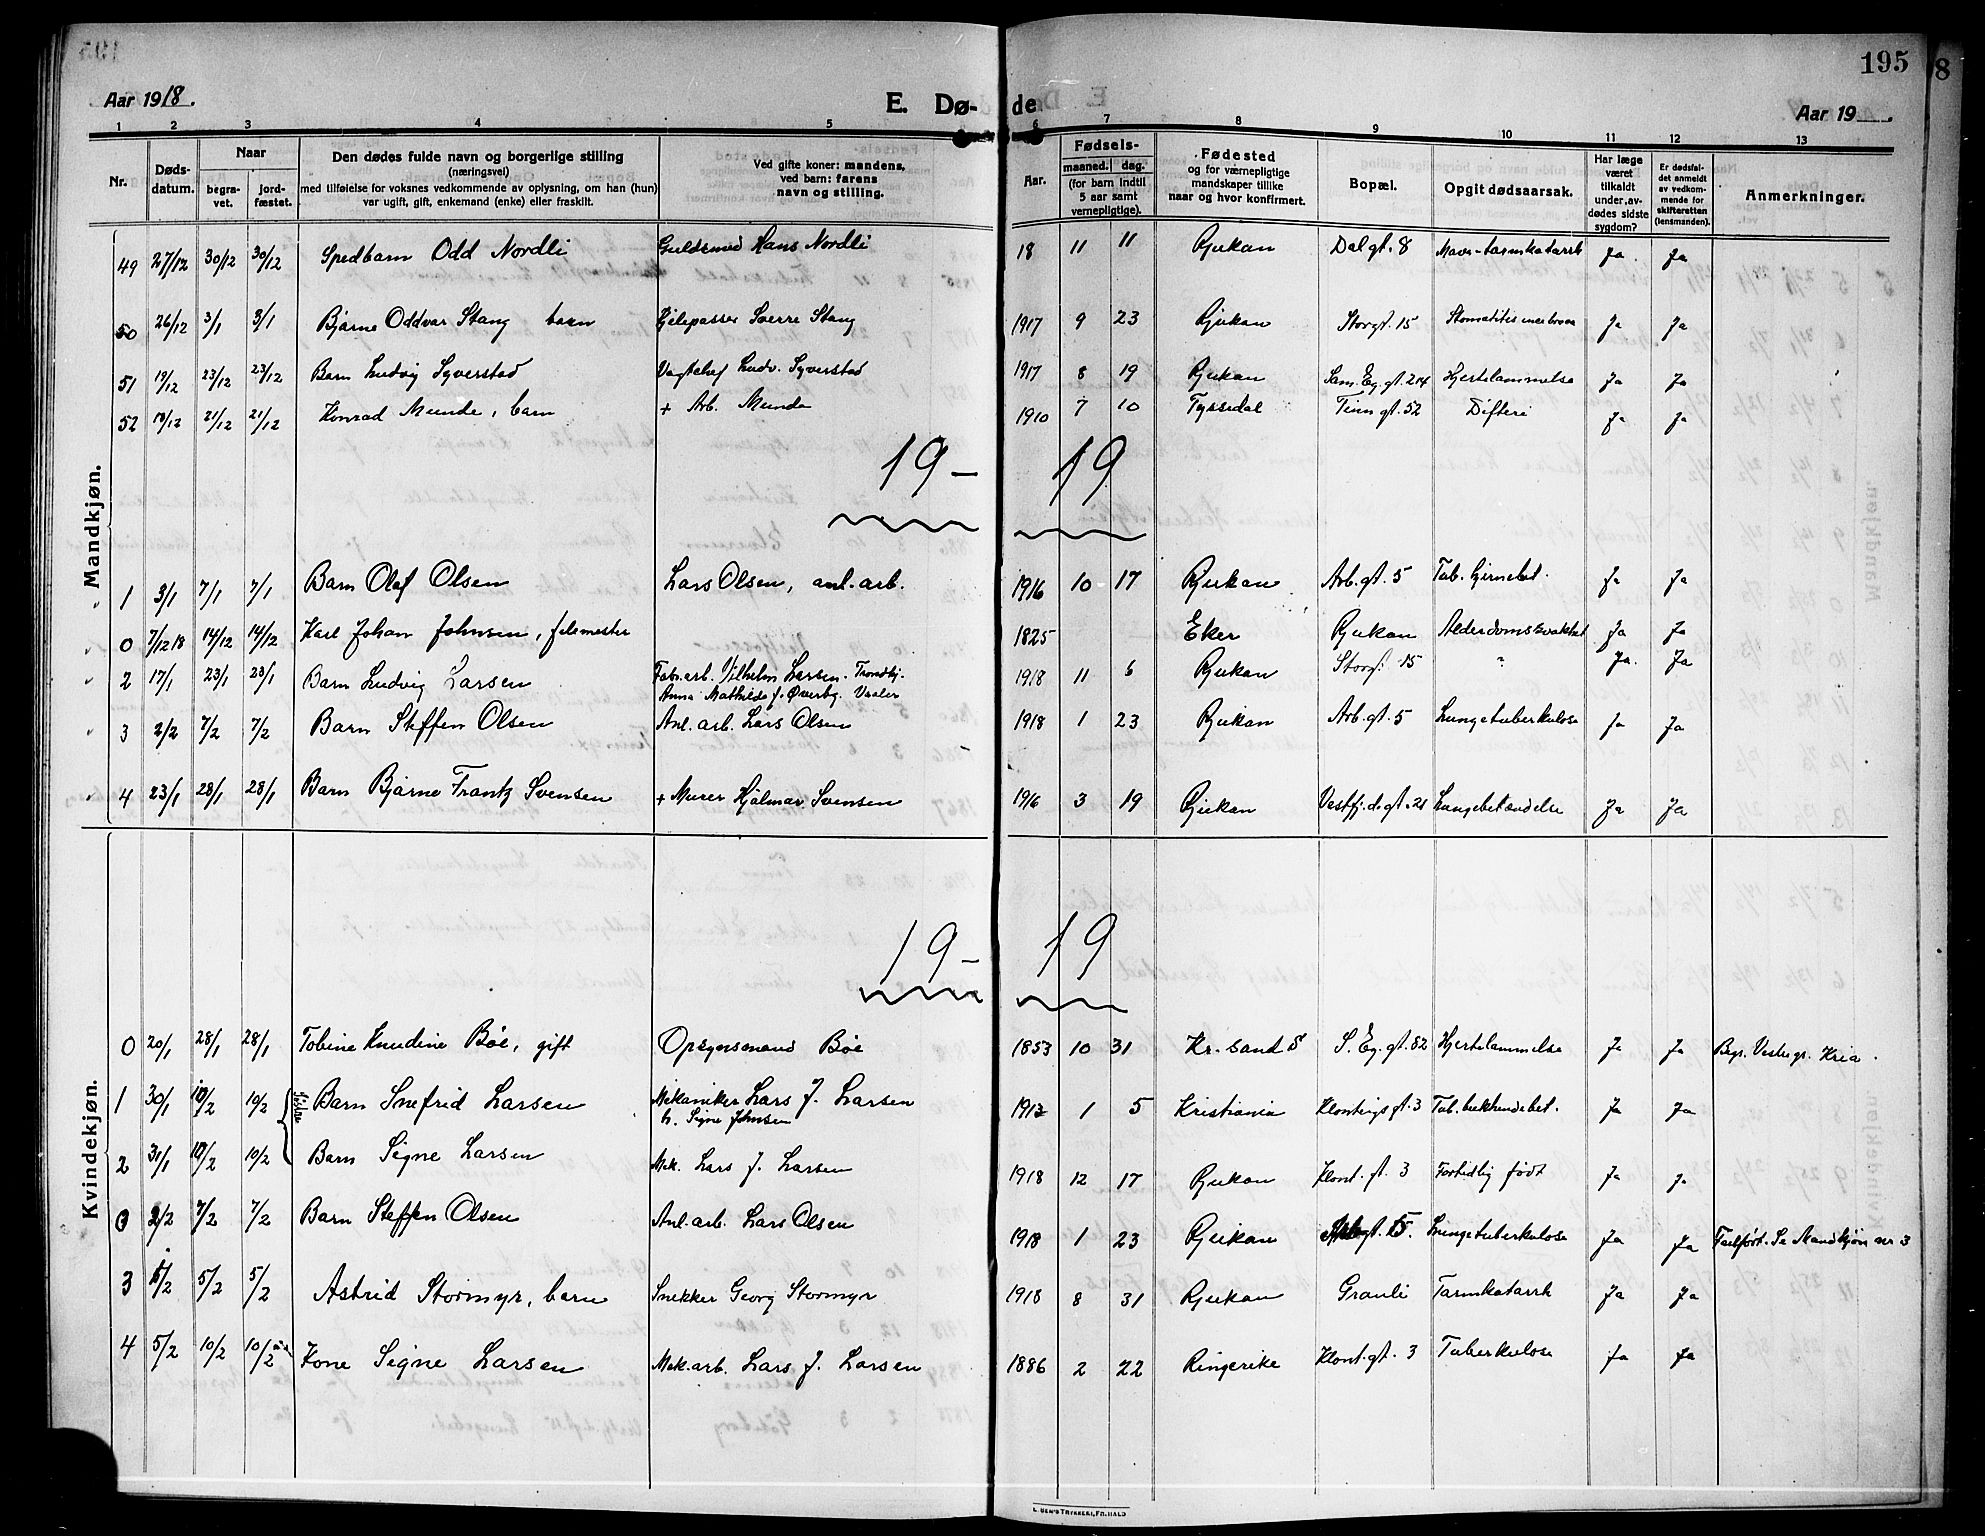 195
8
Aar 1918.
E. Dø- de
Aar 19
1 2 3 4 5 6 7 8 9 10 11 12 13
Nr. Døds-datum. Naar begra-vet. jord-fæstet. Den dødes fulde navn og borgerlige stilling (næringsvei) med tilføielse for voksnes vedkommende av oplysning, om han (hun) var ugift, gift, enkemand (enke) eller fraskilt. Ved gifte koner: mandens, ved barn: farens navn og stilling. Aar. Fødsels- maaned. dag. (for barn indtil 5 aar samt vernepligtige). Fødested og for værnepligtige mandskaper tillike naar og hvor konfirmert. Bopæl. Opgit dødsaarsak. Har læge været tilkaldt under avdødes sidste sygdom? Er dødsfaldet anmeldt av vedkommende for skifteretten (lensmanden). Anmerkninger.
Mandkjøn.
49 27/12 30/12 30/12 Spedbarn Odd Nordli Guldsmed Hans Nordli 18 11 11 Rjukan Dal gt. 8 Mave-tarmkatarrh Ja Ja
50 26/12 3/1 3/1 Bjarne Oddvar Stang barn Kjelepasser Sverre Stang 1917 9 23 Rjukan Storgt. 15 Stomatitis Ja Ja
51 19/12 23/12 23/12 Barn Ludvig Syverstad Vagtchef Ludv. Syverstad 1917 8 19 Rjukan Sam. Eg. gt. 214 Hjertelammelse Ja Ja
52 18/12 21/12 21/12 Konrad Munde, barn + Arb. Munde 1910 7 10 Tyssedal Tinn gt. 52 Difteri Ja Ja
19 - 19
1 3/1 7/1 7/1 Barn Olaf Olsen Lars Olsen, anl. arb. 1916 10 17 Rjukan Arb. gt. 5 Tub. hjernebet. Ja Ja
0 7/12 18 14/12 14/12 Karl Johan Johnsen, filemester 1825 Eker Rjukan Alderdomssvakhet Ja Ja
2 17/1 23/1 23/1 Barn Ludvig Larsen Fabr. arb. Vilhelm Larsen. Trondhj. 1918 11 6 Rjukan Storgt. 15 " Ja. Ja
Anna Mathilde f. Øverby. Vaaler
3 2/2 7/2 7/2 Barn Steffen Olsen Anl. arb. Lars Olsen 1918 1 23 Rjukan Arb. gt. 5 Lungetuberkulose Ja Ja
4 23/1 28/1 28/1 Barn Bjarne Frantz Svensen + Murer Hjalmar Svensen 1916 3 19 Rjukan Vestfj. d. gt. 21 Lungebetændelse Ja Ja
Kvindekjøn.
19 - 19
0 20/1 28/1 28/1 Tobine Knudine Böe, gift Opsynsmand Böe 1853 10 31 Kr. sand S S. Eg. gt. 82 Hjertelammelse Ja Ja Begr. Vestre gr. Kria.
1 30/1 10/2 10/2 Søstre Barn Snefrid Larsen Mekaniker Lars J. Larsen 1912 1 5 Kristiania Klontings gt. 3 Tub. bukhindebet. Ja Ja
h. Signe Johnsen
2 31/1 10/2 10/2 Barn Signe Larsen Mek. Lars J. Larsen 1918 12 17 Rjukan Klont. gt. 3 Fortidlig født Ja Ja
0 2/2 7/2 7/2 Barn Steffen Olsen Anl. arb. Lars Olsen 1918 1 23 Rjukan Arb. gt. 5. Lungetuberkulose Ja Ja Feilført. Se Mandkjøn nr 3
3 1/2 5/2 5/2 Astrid Stormyr, barn Snekker Georg Stormyr 1918 8 31 Rjukan Granli Tarmkatarrh Ja Ja
4 5/2 10/2 10/2 Kone Signe Larsen Mek. arb. Lars J. Larsen 1886 2 22 Ringerike Klont. gt. 3 Tuberkulose Ja Ja